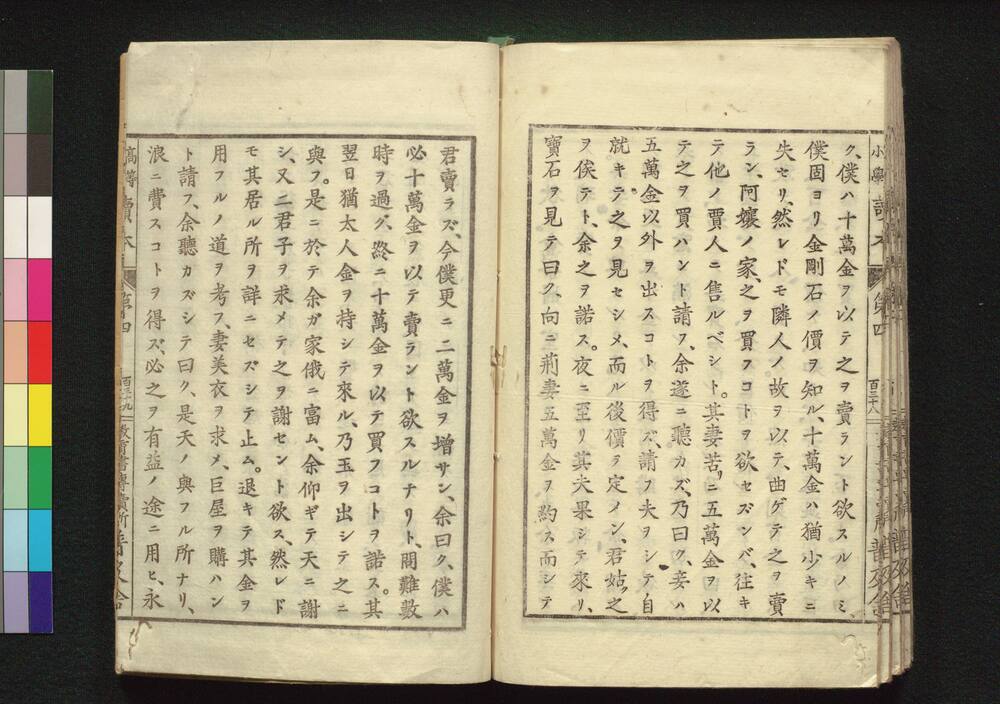 小學讀本 第四 百三十八 普及舍
ク、僕ハ十萬金ヲ以テ之ヲ賣ラント欲スルノミ、
僕固ヨリ金剛石ノ價ヲ知ル、十萬金ハ猶少キニ
失セリ、然レドモ隣人ノ故ヲ以テ、曲ゲテ之ヲ賣
ラン、阿孃ノ家、之ヲ買フコトヲ欲セズンバ、往キ
テ他ノ賈人ニ售ルベシト。其妻苦ニ五萬金ヲ以
テ之ヲ買ハント請フ、余遂ニ聽カズ、乃曰ク、妾ハ
五萬金以外ヲ出スコトヲ得ズ、請フ夫ヲシテ自
就キテ之ヲ見セシメ、而ル後價ヲ定メン、君姑之
ヲ俟テト、余之ヲ諾ス。夜ニ至リ其夫果シテ來リ、
寶石ヲ見テ曰ク、向ニ荊妻五萬金ヲ約ス而シテ
君賣ラズ、今僕更ニ二萬金ヲ增サン、余曰ク、僕ハ
必十萬金ヲ以テ賣ラント欲スルナリト、問難數
時ヲ過グ、終ニ十萬金ヲ以テ買フコトヲ諾ス。其
翌日猶太人金ヲ持シテ來ル、乃玉ヲ出シテ之ニ
與フ。是ニ於テ余ガ家俄ニ富ム、余仰ギテ天ニ謝
シ、又二君子ヲ求メテ之ヲ謝セント欲ス、然レド
モ其居ル所ヲ詳ニセズシテ止ム。退キテ其金ヲ
用フルノ道ヲ考フ、妻美衣ヲ求メ、巨屋ヲ購ハン
ト請フ、余聽カズシテ曰ク、是天ノ與フル所ナリ、
浪ニ費スコトヲ得ズ、必之ヲ有益ノ途ニ用ヒ、永
高等讀本 第四 百三十九 教育書專賣所普及舍